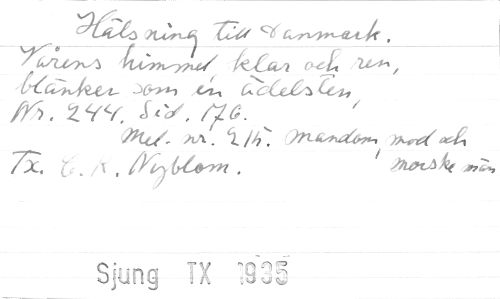 Hälsning till Danmark.
Vårens himmel, klar och ren,
blänker som en ädelsten,
Nr. 244. Sid. 176.
Mel. nr. 215. Mandom, mod och
morske män
Tx. C. R. Nyblom.
Sjung TX 1935